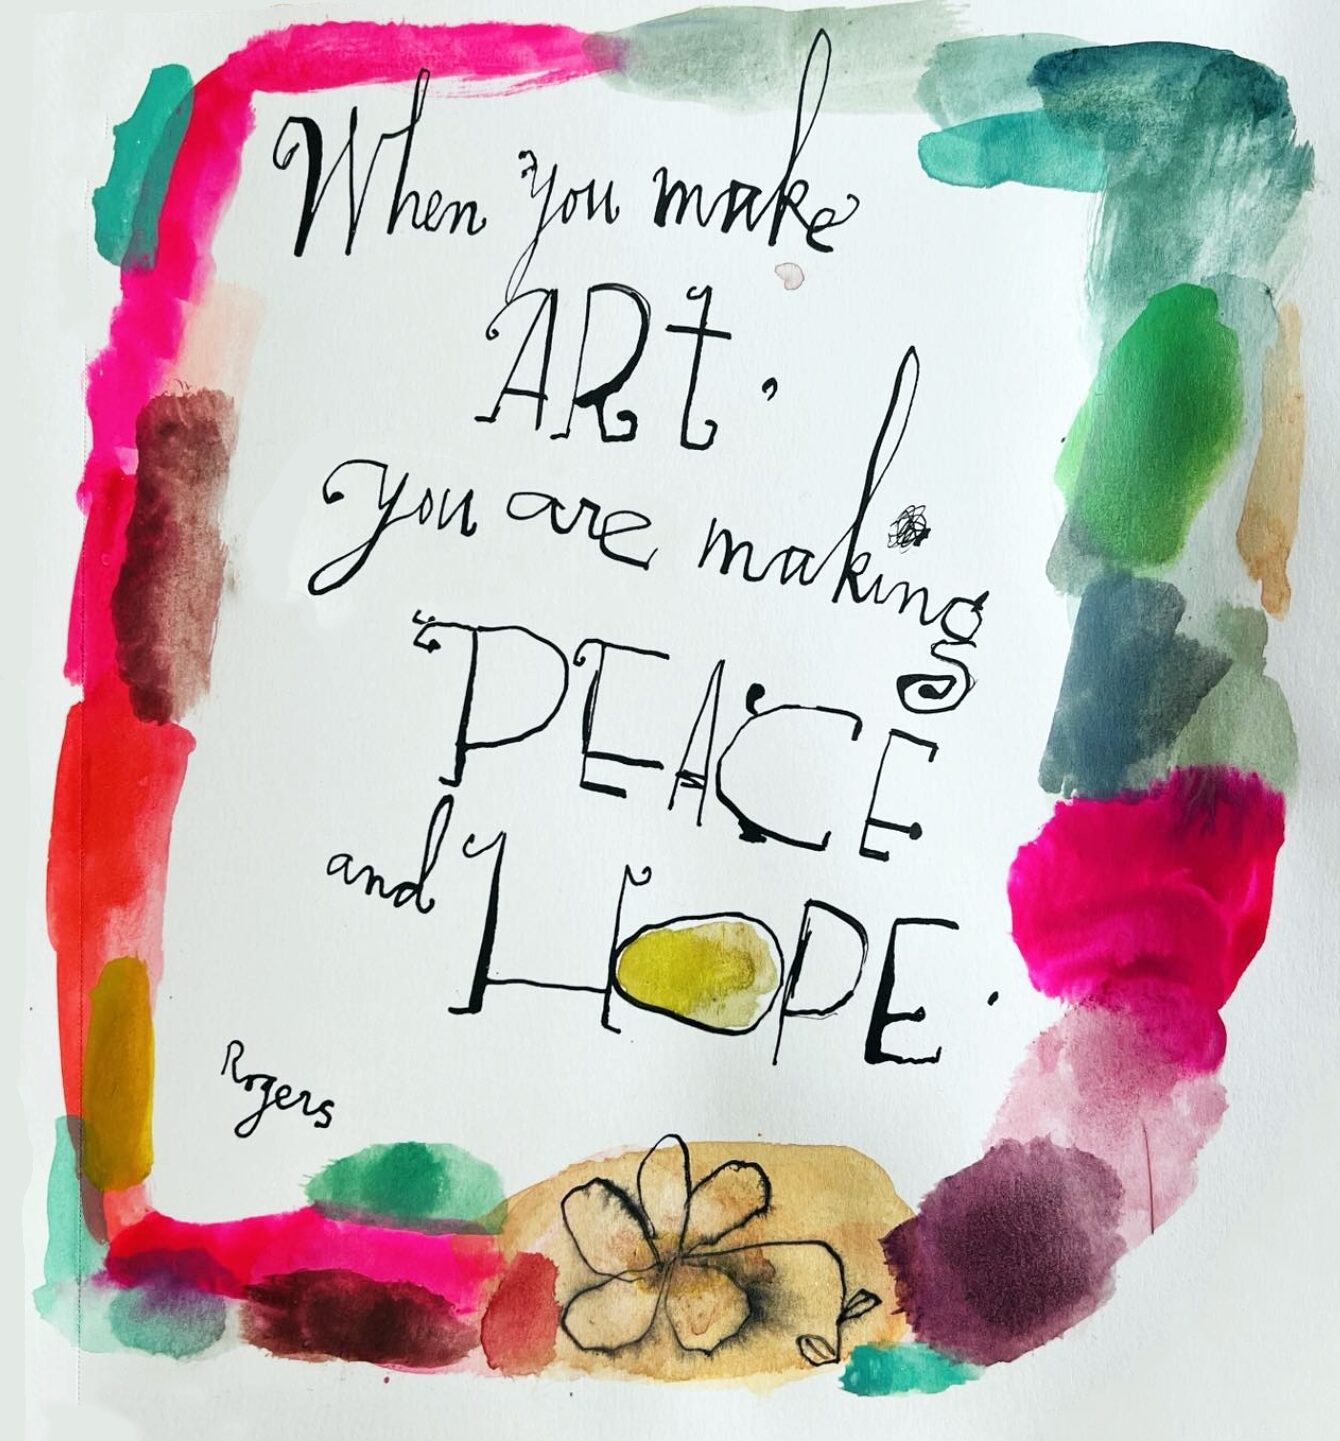 When you make
ART,
you are making
PEACE
and HOPE.
Rogers